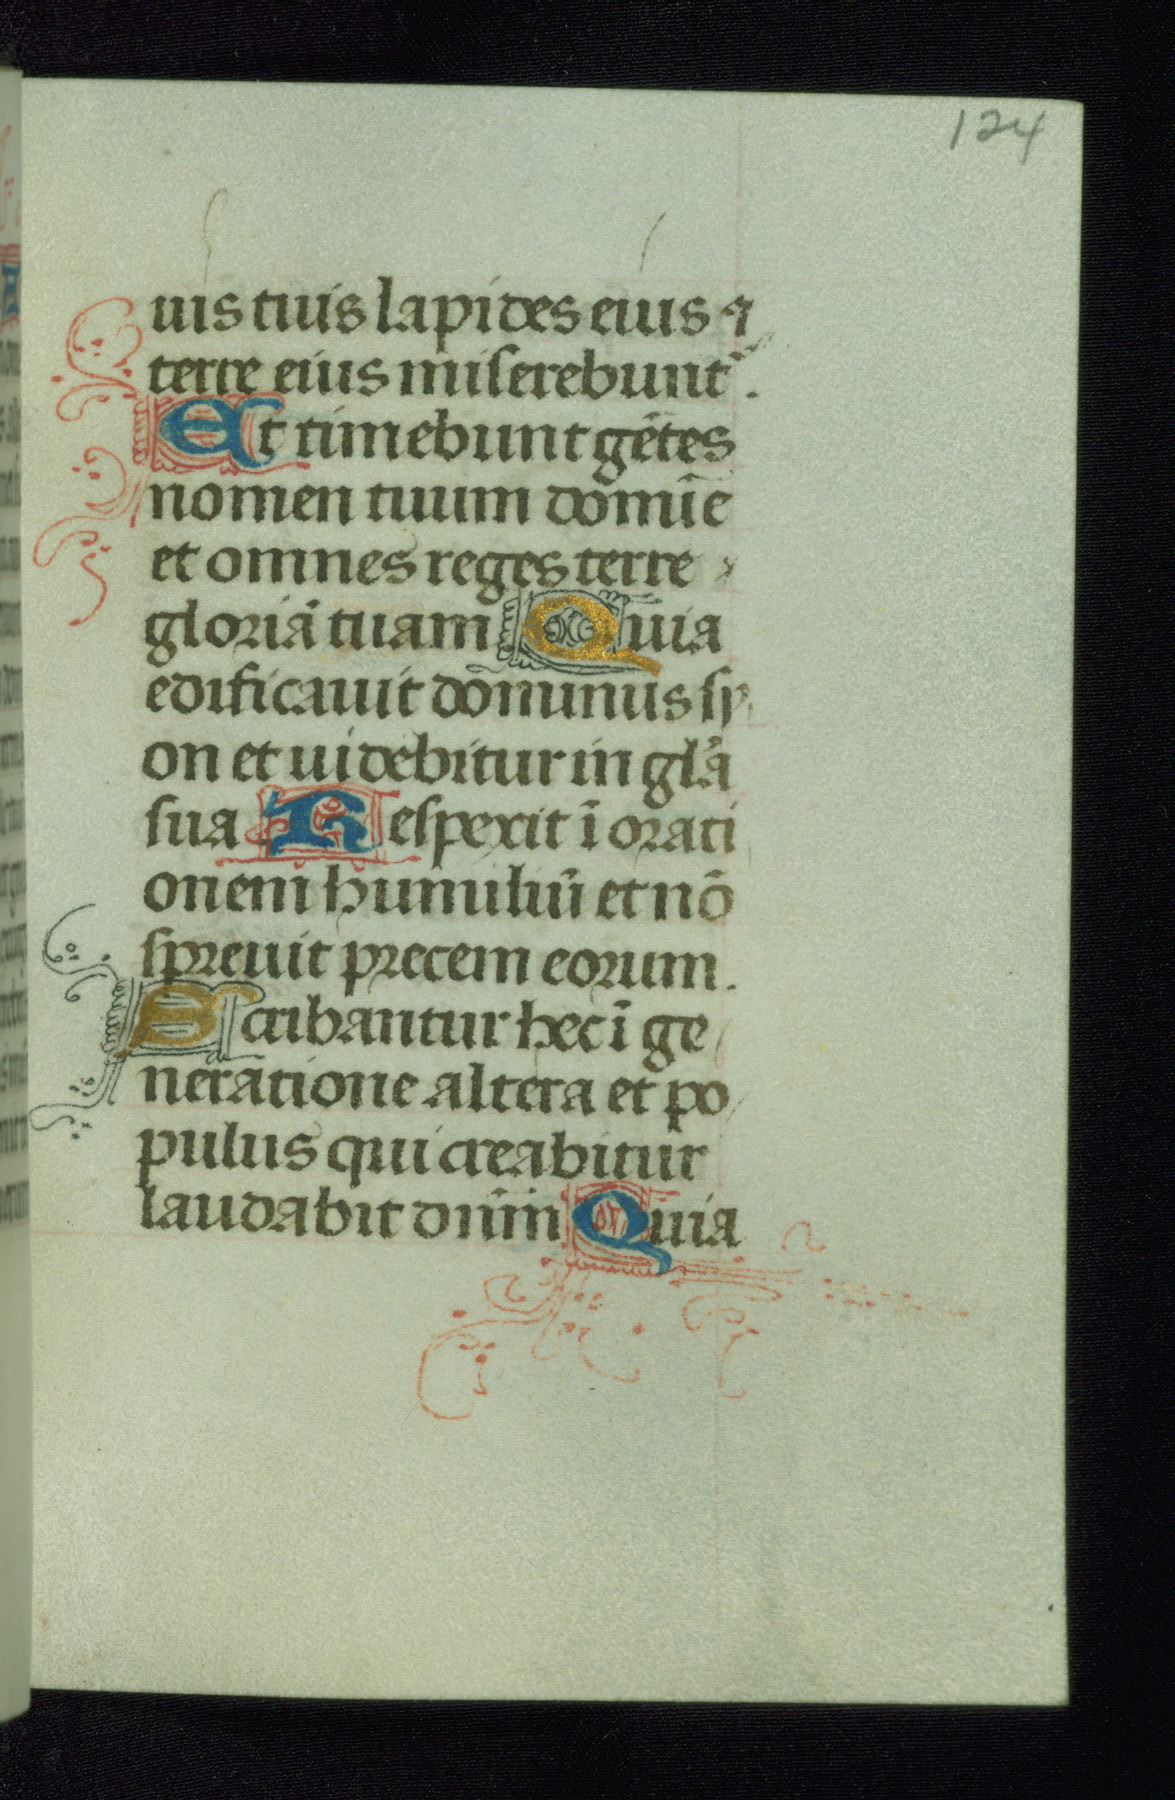 124
uis tuis lapides eius ⁊
terre eius miserebunt᷑.
Et timebunt gẽtes
nomen tuum domĩe
et omnes reges terre
gloriã tuam Quia
edificauit dominus sy
on et uidebitur in gl̃a
sua Respexit ĩ orati
onem humiliũ et nõ
spreuit precem eorum.
Scribantur hec ĩ ge
neratione altera et po
pulus qui creabitur
laudabit dnm̃ Quia